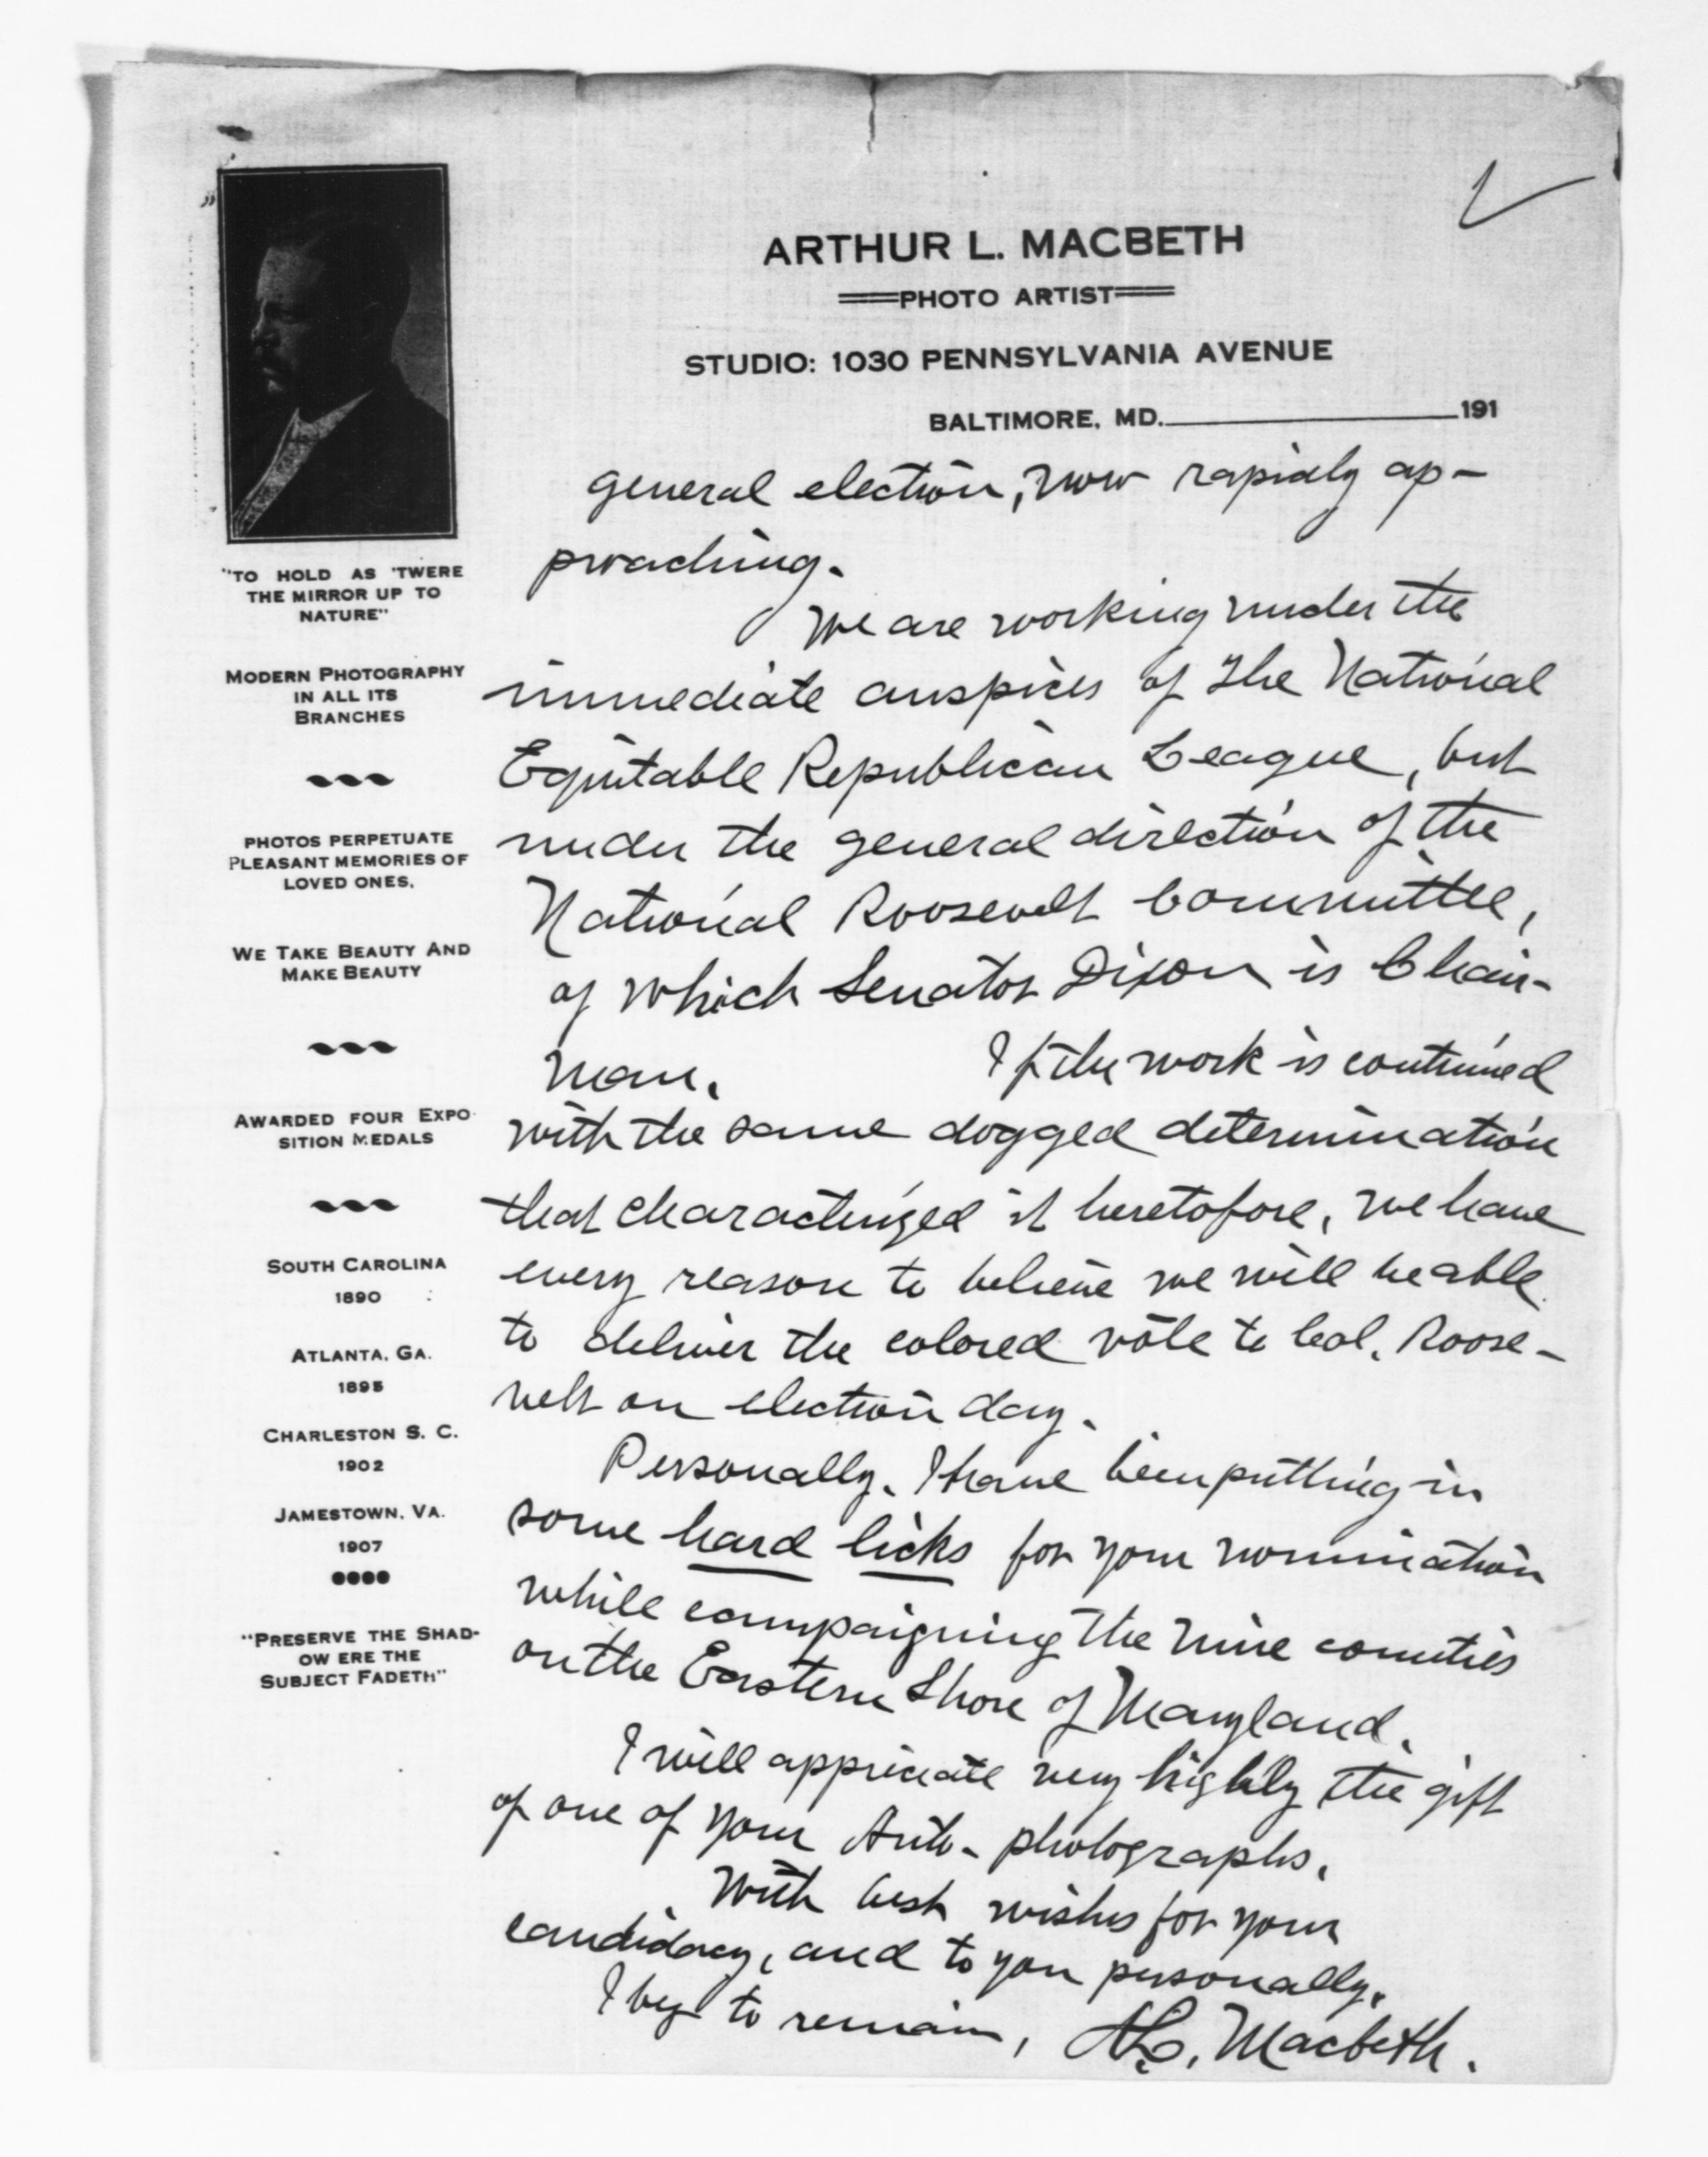 ARTHUR L. MACBETH
PHOTO ARTIST
STUDIO: 1030 PENNSYLVANIA AVENUE
BALTIMORE, MD. 191
"TO HOLD AS 'TWERE
THE MIRROR UP TO
NATURE"
MODERN PHOTOGRAPHY
IN ALL ITS
BRANCHES
PHOTOS PERPETUATE
PLEASANT MEMORIES OF
LOVED ONES.
WE TAKE BEAUTY AND
MAKE BEAUTY
AWARDED FOUR EXPO
SITION MEDALS
SOUTH CAROLINA
1890
ATLANTA, GA.
1895
CHARLESTON S. C.
1902
JAMESTOWN, VA.
1907
"PRESERVE THE SHAD-
OW ERE THE
SUBJECT FADETH"
general election, now rapidly ap-
proaching.
We are working under the
immediate auspices of The National
Equitable Republican League, but
under the general direction of the
National Roosevelt Committee,
of which Senator Dixon is Chair-
man. If the work is continued
with the same dogged determination
that characterized it heretofore, we have
every reason to believe we will be able
to deliver the colored vote to Col. Roose-
velt on election day.
Personally, I have been putting in
some hard licks for your nomination
while campaigning the nine counties
on the Eastern Shore of Maryland.
I will appriciate very highly the gift
of one of your Auto-photographs.
With best wishes for your
candidacy, and to you personally,
I beg to remain, A.L. Macbeth.